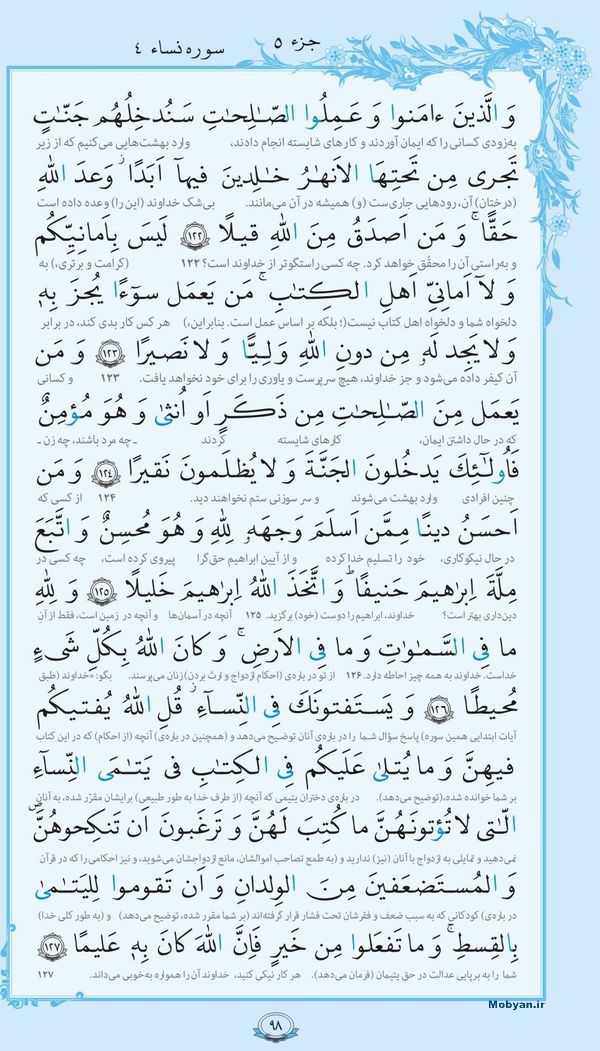 جزء ۵
سوره نساء ۴
وَ الَّذينَ ءامَنوا وَ عَمِلُوا الصّالِحاتِ سَنُدخِلُهُم جَنّاتٍ
به‌زودی کسانی را که ایمان آوردند و کارهای شایسته انجام دادند، وارد بهشت‌هایی می‌کنیم که از زیر
تَجری مِن تَحتِهَا الاَنهٰرُ خٰلِدینَ فیهآ اَبَدًا وَعدَ اللّٰهِ
(درختان) آن، رودهایی جاری‌ست (و) همیشه در آن می‌مانند. بی‌شک خداوند (این را) وعده داده است
حَقًّا وَ مَن اَصدَقُ مِنَ اللّٰهِ قیلًا ۱۲۲ لَیسَ بِاَمانِیِّکُم
و به‌راستی آن را محقّق خواهد کرد. چه کسی راستگوتر از خداوند است؟ ۱۲۲ (کرامت و برتری،) به
وَ لآ اَمانِیِّ اَهلِ الکِتٰبِ مَن یَعمَل سوٓءًا یُجزَ بِه۪
دلخواه شما و دلخواه اهل کتاب نیست(؛ بلکه بر اساس عمل است. بنابراین،) هر کس کار بدی کند، در برابر
وَ لا یَجِد لَهٗ مِن دونِ اللّٰهِ وَلِیًّا وَ لا نَصیرًا ۱۲۳ وَ مَن
آن کیفر داده می‌شود و جز خداوند، هیچ سرپرست و یاوری را برای خود نخواهد یافت. ۱۲۳ و کسانی
یَعمَل مِنَ الصّٰلِحٰتِ مِن ذَکَرٍ اَو اُنثیٰ وَ هُوَ مُؤمِنٌ
که در حال داشتن ایمان، کارهای شایسته کردند ـ چه مرد باشند، چه زن ـ
فَاُولٰٓئِكَ یَدخُلونَ الجَنَّةَ وَ لا یُظلَمونَ نَقیرًا ۱۲۴ وَ مَن
چنین افرادی وارد بهشت می‌شوند و سر سوزنی ستم نخواهند دید. ۱۲۴ از کسی که
اَحسَنُ دینًا مِمَّن اَسلَمَ وَجهَهٗ لِلّٰهِ وَ هُوَ مُحسِنٌ وَ اتَّبَعَ
در حال نیکوکاری، خود را تسلیم خدا کرده و از آیین ابراهیم حق‌گرا پیروی کرده است، چه کسی در
مِلَّةَ اِبرٰهیمَ حَنیفًا وَ اتَّخَذَ اللّٰهُ اِبرٰهیمَ خَلیلًا ۱۲۵ وَ لِلّٰهِ
دین‌داری بهتر است؟ خداوند، ابراهیم را دوست (خود) برگزید. ۱۲۵ آنچه در آسمان‌ها و آنچه در زمین است، فقط از آنِ
ما فِی السَّمٰوٰتِ وَ ما فِی الاَرضِ وَ کانَ اللّٰهُ بِکُلِّ شَیءٍ
خداست. خداوند به همه چیز احاطه دارد. ۱۲۶ از تو در باره‌ی (احکام ازدواج و ارث بردن) زنان می‌پرسند. بگو: «خداوند (طبق
مُحیطًا ۱۲۶ وَ یَستَفتونَكَ فِی النِّسآءِ قُلِ اللّٰهُ یُفتیکُم
آیات ابتدایی همین سوره) پاسخ سؤال شما را در باره‌ی آنان توضیح می‌دهد و (همچنین در باره‌ی) آنچه (از احکام) که در این کتاب
فیهِنَّ وَ ما یُتلیٰ عَلَیکُم فِی الکِتٰبِ فی یَتٰمَی النِّسآءِ
بر شما خوانده شده،(توضیح می‌دهد). در باره‌ی دختران یتیمی که آنچه (از طرف خدا به طور طبیعی) برایشان مقرّر شده، به آنان
الّٰتی لا تُؤتونَهُنَّ ما کُتِبَ لَهُنَّ وَ تَرغَبونَ اَن تَنکِحوهُنَّ
نمی‌دهید و تمایلی به ازدواج با آنان (نیز) ندارید و (به طمع تصاحب اموالشان، مانع ازدواجشان می‌شوید، و نیز احکامی را که در قرآن
وَ المُستَضعَفینَ مِنَ الوِلدانِ وَ اَن تَقوموا لِلیَتٰمیٰ
در باره‌ی) کودکانی که به سبب ضعف و فقرشان تحت فشار قرار گرفته‌اند (بر شما مقرر شده، توضیح می‌دهد) و (به طور کلی خدا)
بِالقِسطِ وَ ما تَفعَلوا مِن خَیرٍ فَاِنَّ اللّٰهَ کانَ بِه۪ عَلیمًا ۱۲۷
شما را به برپایی عدالت در حق یتیمان (فرمان می‌دهد). هر کار نیکی کنید، خداوند آن را همواره به‌خوبی می‌داند. ۱۲۷
Mobyan.ir
۹۸